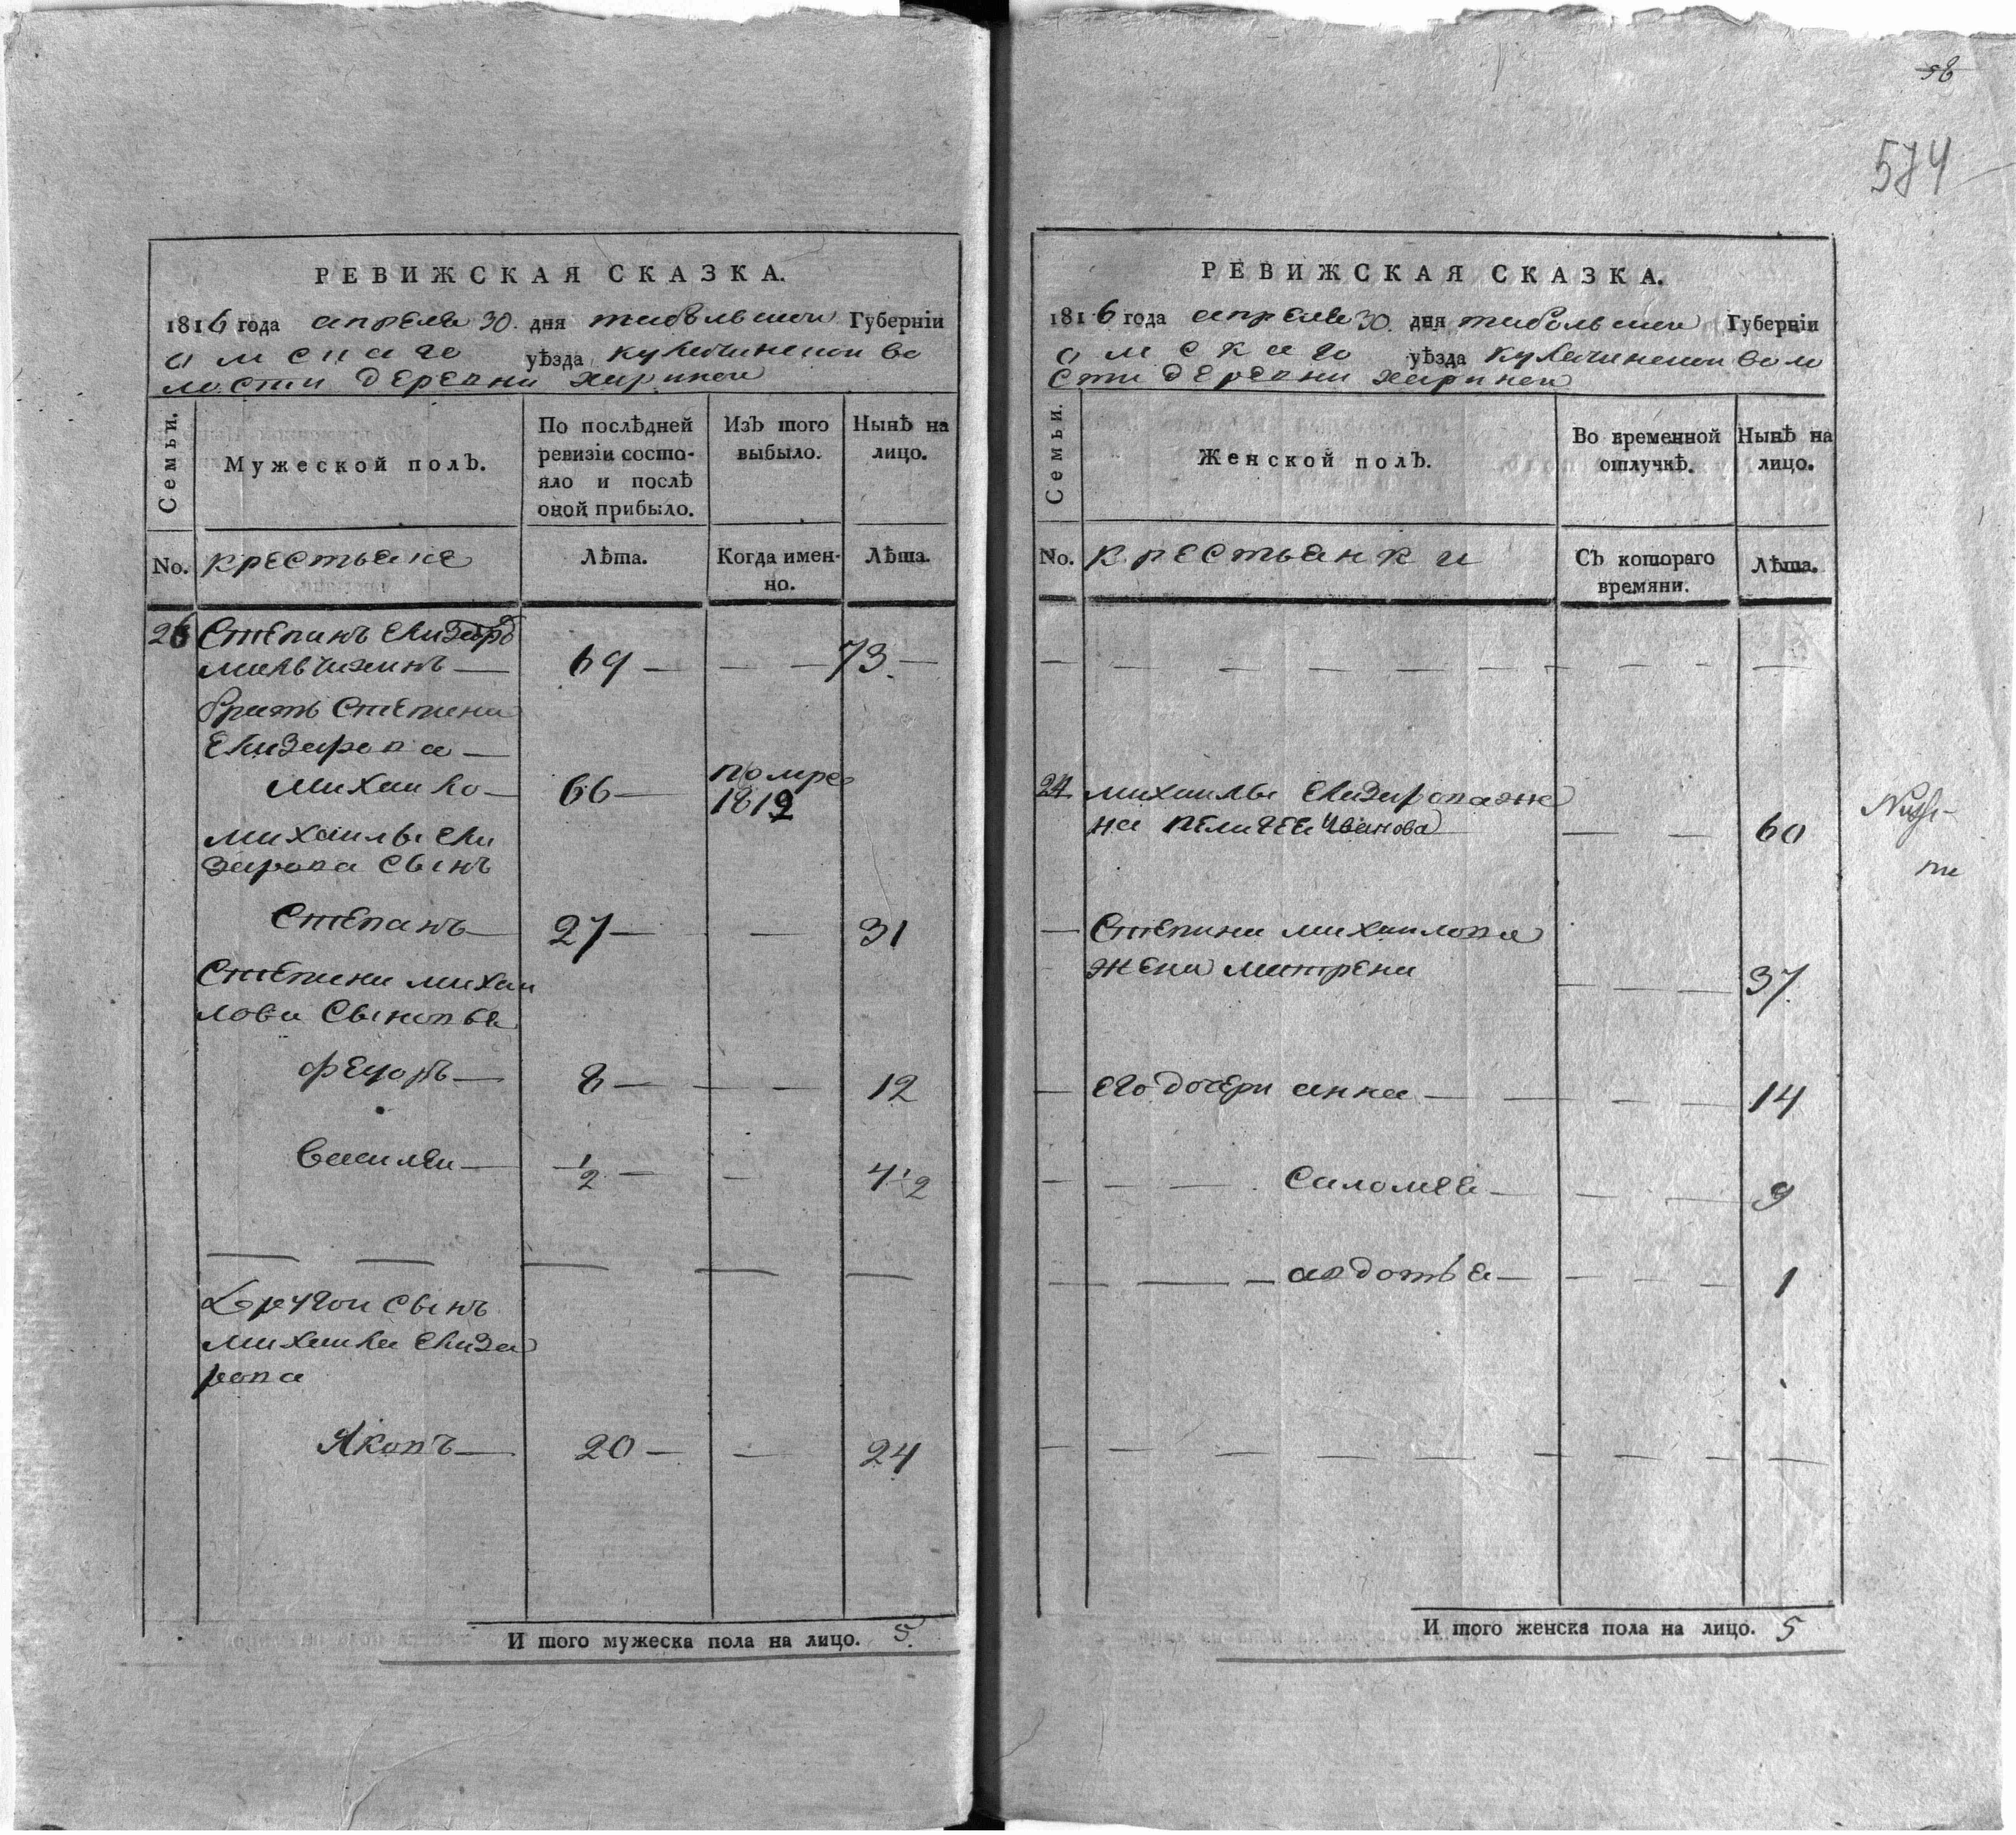 58
574
РЕВИЖСКАЯ СКАЗКА.
1816 года апреля 30. дня тобольской Губерніи
омскаго уѣзда кулачинской во
лости деревни хариной
Семьи.
Мужеской полЪ.
По послѣдней ревизіи состо-
яло и послѣ
оной прибыло.
ИзЪ того выбыло.
Нынѣ на лицо.
No. крестьяне
Лѣта.
Когда имен-
но.
Лѣта.
26 Степанъ Елизаровъ
69 — — — 73 —
братъ Степана
Елизарова —
михаило — 66 — помре 1812
михаила Ели
зарова сынъ
Степанъ — 27 — — 31
Степана михаи
лова сыновья
Федоръ — 8 — — — 12
василеи — 1/2 — — 4 1/2
Другои сынъ
михаила Елиза
рова
Яковъ — 20 — — 24
И того мужеска пола на лицо. 5.
РЕВИЖСКАЯ СКАЗКА.
1816 года апреля 30. дня тобольской Губерніи
омскаго уѣзда кулачинской воло
сти деревни хариной
Семьи.
Женской полЪ.
Во временной отлучкѣ.
Нынѣ на лицо.
No. крестьянки
СЪ котораго
времяни.
Лѣта.
михаилы Елизарова же
на пелагея Иванова — — 60
— Степана михаилова
жена матрена — — — 37
— его дочери анна — — — — 14
— — — саломея — — — 9
— — — авдотья — — — — 1
И того женска пола на лицо. 5